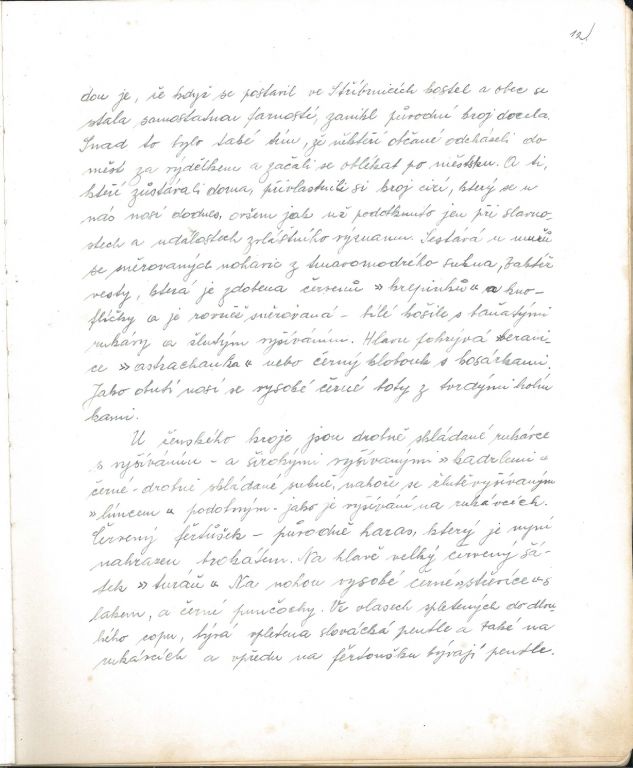 12)
dou je, že když se postavil ve Stříbrnicích kostel a obec se
stala samostatnou farností, zanikl původní kroj docela.
Snad to bylo také tím, že někteří občané odcházeli do
měst za výdělkem a začali se oblékat po městsku. A ti,
kteří zůstávali doma, přivlastnili si kroj cizí, který se u
nás nosí dodnes, ovšem jak už podotknuto jen při slavno-
stech a událostech zvláštního významu. Sestává u mužů
ze šněrovaných nohavic z tmavomodrého sukna, z aktéž
vesty, která je zdobena červenů "krepinků" a kno-
flíčky a je rovněž šněrovaná - bílé košile s baňatými
rukávy a žlutým vyšíváním. Hlavu pokrývá berani-
ce "astrachanka" nebo černý klobouk s kosárkami.
Jako obutí nosí se vysoké černé boty z tvrdými holin
kami.
U ženského kroje jsou drobně skládané rukávce
s vyšíváním - a širokými vyšívanými "kadrlemi"
černé - drobně skládané sukně, nahoře se žlutě vyšívaným
"límcem" podobným - jako je vyšívání na rukávcích.
Červený fěrtůšek - původně haras, který je nyní
nahrazen brokátem. Na hlavě velký červený šá-
tek "turák" Na nohou vysoké černé "střevíce" s
lakem, a černé punčochy. Ve vlasech spletených do dlou
hého copu, bývá vpletena slovácká pentle a také na
rukávcích a vpředu na fěrtoušku bývají pentle.